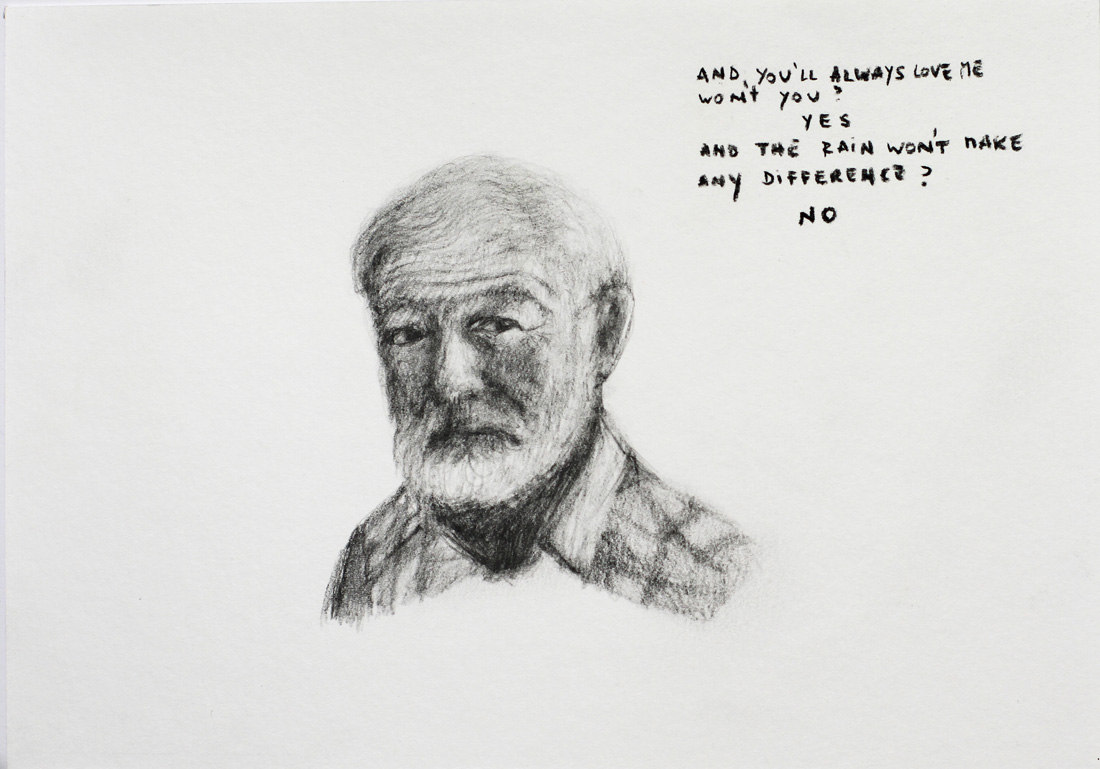 AND, YOU'LL ALWAYS LOVE ME
WON'T YOU?
YES
AND THE RAIN WON'T MAKE
ANY DIFFERENCE?
NO